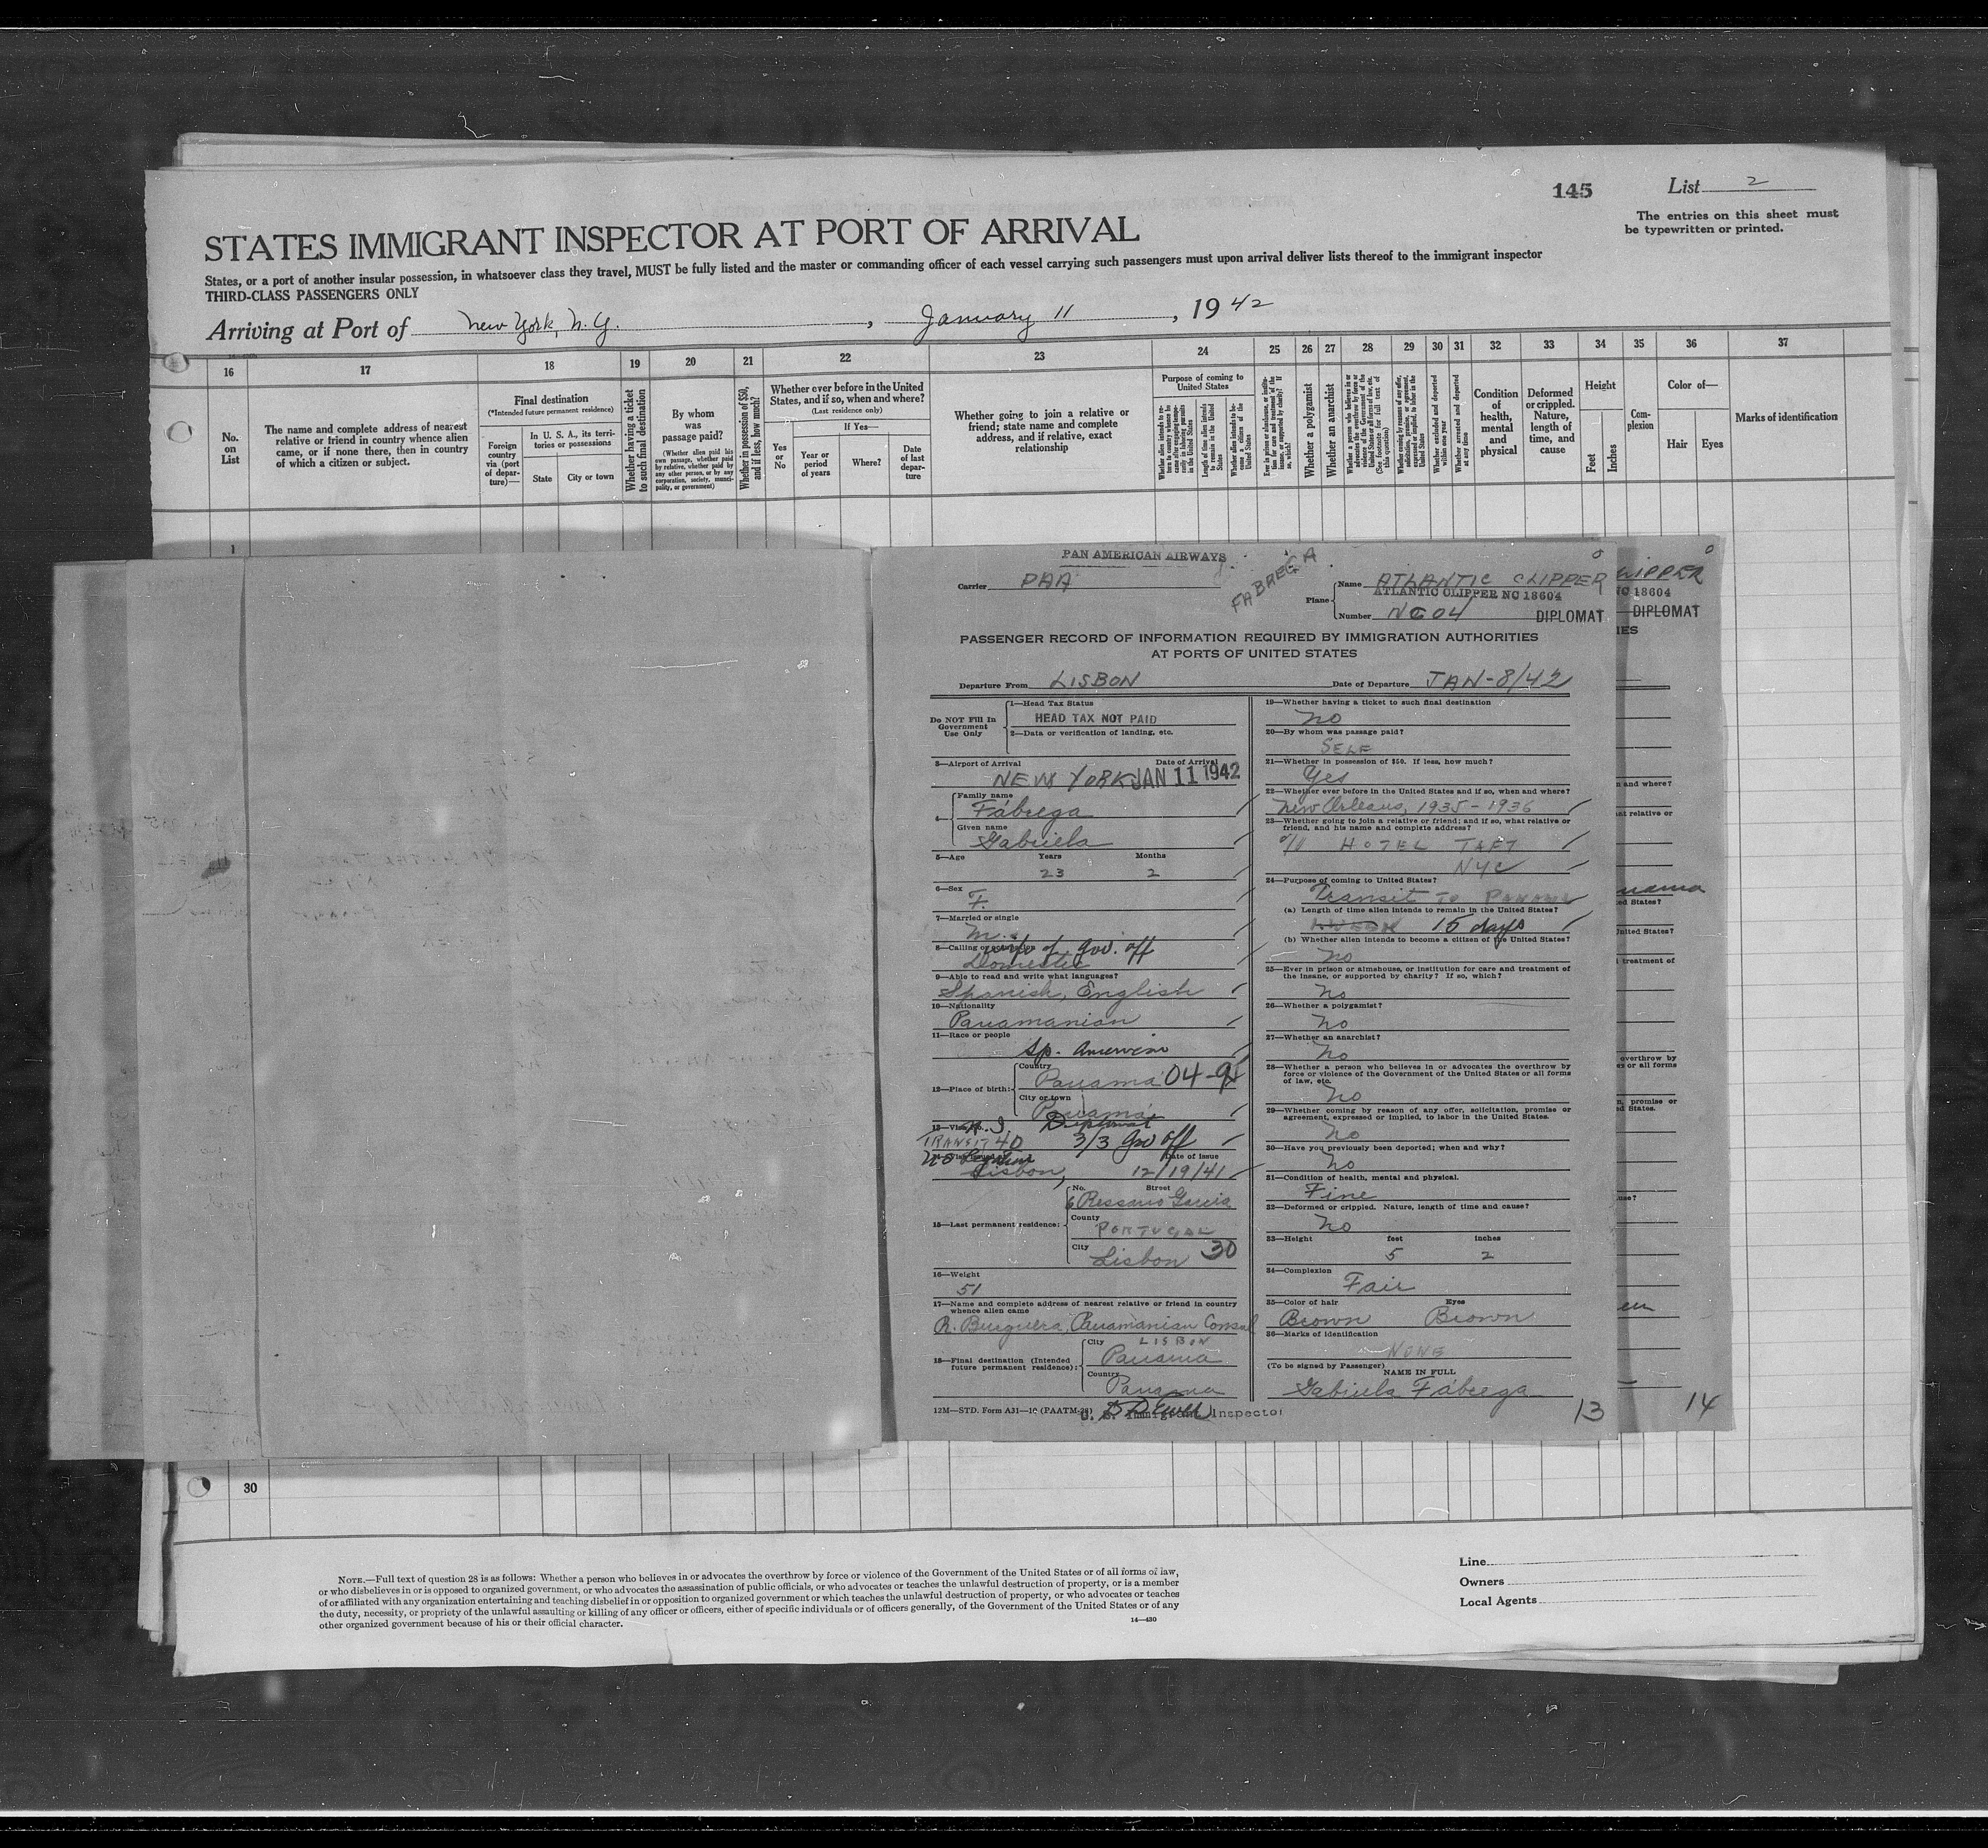 145
List 2
The entries on this sheet must
be typewritten or printed.
STATES IMMIGRANT INSPECTOR AT PORT OF ARRIVAL
States, or a port of another insular possession, in whatsoever class they travel, MUST be fully listed and the master or commanding officer of each vessel carrying such passengers must upon arrival deliver lists thereof to the immigrant inspector
THIRD-CLASS PASSENGERS ONLY
Arriving at Port of New York, N.Y. , January 11 , 1942
16 17 18 19 20 21 22 23 24 25 26 27 28 29 30 31 32 33 34 35 36 37
No. on List
The name and complete address of nearest
relative or friend in country whence alien
came, or if none there, then in country
of which a citizen or subject.
Final destination
(*Intended future permanent residence)
Foreign country via (port of departure)—
In U. S. A., its territories or possessions
State
City or town
Whether having a ticket to such final destination
By whom was passage paid?
(Whether alien paid his own passage, whether paid by relative, whether paid by any other person, or by any corporation, society, municipality, or government)
Whether in possession of $50, and if less, how much?
Whether ever before in the United
States, and if so, when and where?
(Last residence only)
If Yes—
Yes or No
Year or period of years
Where?
Date of last departure
Whether going to join a relative or
friend; state name and complete
address, and if relative, exact
relationship
Purpose of coming to
United States
Length of time alien intends to remain in the United States
Whether alien intends to become a citizen of the United States
Whether a polygamist
Whether an anarchist
Whether excluded and deported within one year
Whether arrested and deported at any time
Condition of health, mental and physical
Deformed or crippled. Nature, length of time, and cause
Height
Feet
Inches
Complexion
Color of—
Hair
Eyes
Marks of identification
1
PAN AMERICAN AIRWAYS
Carrier PAA
FABREGA
Plane
Name ATLANTIC CLIPPER
ATLANTIC CLIPPER NC 18604
Number NC 04
DIPLOMAT
PASSENGER RECORD OF INFORMATION REQUIRED BY IMMIGRATION AUTHORITIES
AT PORTS OF UNITED STATES
Departure From LISBON
Date of Departure JAN-8/42
Do NOT Fill In
Government
Use Only
1—Head Tax Status
HEAD TAX NOT PAID
2—Data or verification of landing, etc.
3—Airport of Arrival
Date of Arrival
NEW YORK JAN 11 1942
4—
Family name
Fábrega
Given name
Gabriela
5—Age Years Months
23 2
6—Sex
F.
7—Married or single
M.
8—Calling or occupation
wife of gov. off
Domestic
9—Able to read and write what languages?
Spanish, English
10—Nationality
Panamanian
11—Race or people
Sp. American
12—Place of birth:
Country
Panamá 04-9
City or town
Panamá
13—Visa No.
Diplomat
TRANSIT 40 3/3 Gov off
Date of issue
Lisbon, 12/19/41
15—Last permanent residence:
No. Street
6 Ressano Garcia
County
PORTUGAL
City
Lisbon 30
16—Weight
51
17—Name and complete address of nearest relative or friend in country
whence alien came
R. Burguera, Panamanian Consul
LISBON
18—Final destination (Intended
future permanent residence):
City
Panama
Country
Panama
12M—STD. Form A31—10 (PAATM-28)
U. S. Immigrant Inspector
19—Whether having a ticket to such final destination
No
20—By whom was passage paid?
SELF
21—Whether in possession of $50. If less, how much?
Yes
22—Whether ever before in the United States and if so, when and where?
New Orleans, 1935-1936
23—Whether going to join a relative or friend; and if so, what relative or
friend, and his name and complete address?
HOTEL TAFT
NYC
24—Purpose of coming to United States?
Transit TO PANAMA
(a) Length of time alien intends to remain in the United States?
15 days
(b) Whether alien intends to become a citizen of the United States?
No
25—Ever in prison or almshouse, or institution for care and treatment of
the insane, or supported by charity? If so, which?
No
26—Whether a polygamist?
No
27—Whether an anarchist?
No
28—Whether a person who believes in or advocates the overthrow by
force or violence of the Government of the United States or all forms
of law, etc.
No
29—Whether coming by reason of any offer, solicitation, promise or
agreement, expressed or implied, to labor in the United States.
No
30—Have you previously been deported; when and why?
No
31—Condition of health, mental and physical.
Fine
32—Deformed or crippled. Nature, length of time and cause?
No
33—Height feet inches
5 2
34—Complexion
Fair
35—Color of hair Eyes
Brown Brown
36—Marks of identification
NONE
(To be signed by Passenger)
NAME IN FULL
Gabriela Fábrega
13
DIPLOMAT
14
30
NOTE.—Full text of question 28 is as follows: Whether a person who believes in or advocates the overthrow by force or violence of the Government of the United States or of all forms of law,
or who disbelieves in or is opposed to organized government, or who advocates the assassination of public officials, or who advocates or teaches the unlawful destruction of property, or is a member
of or affiliated with any organization entertaining and teaching disbelief in or opposition to organized government or which teaches the unlawful destruction of property, or who advocates or teaches
the duty, necessity, or propriety of the unlawful assaulting or killing of any officer or officers, either of specific individuals or of officers generally, of the Government of the United States or of any
other organized government because of his or their official character.
14—430
Line
Owners
Local Agents